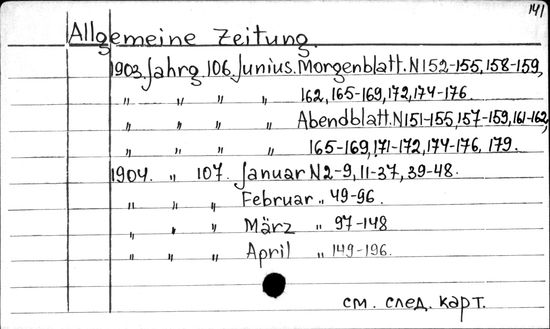 141
Allgemeine Zeitung.
1903. Jahrg. 106. Junius. Morgenblatt. N152-155, 158-159,
" " " " 162, 165-169, 172, 174-176.
" " " " Abendblatt. N151-155, 157-159, 161-162,
" " " " 165-169, 171-172, 174-176, 179.
1904. " 107. Januar N2-9, 11-37, 39-48.
" " " Februar " 49-96.
" " " März " 97-148
" " " April " 149-196.
см. след. карт.